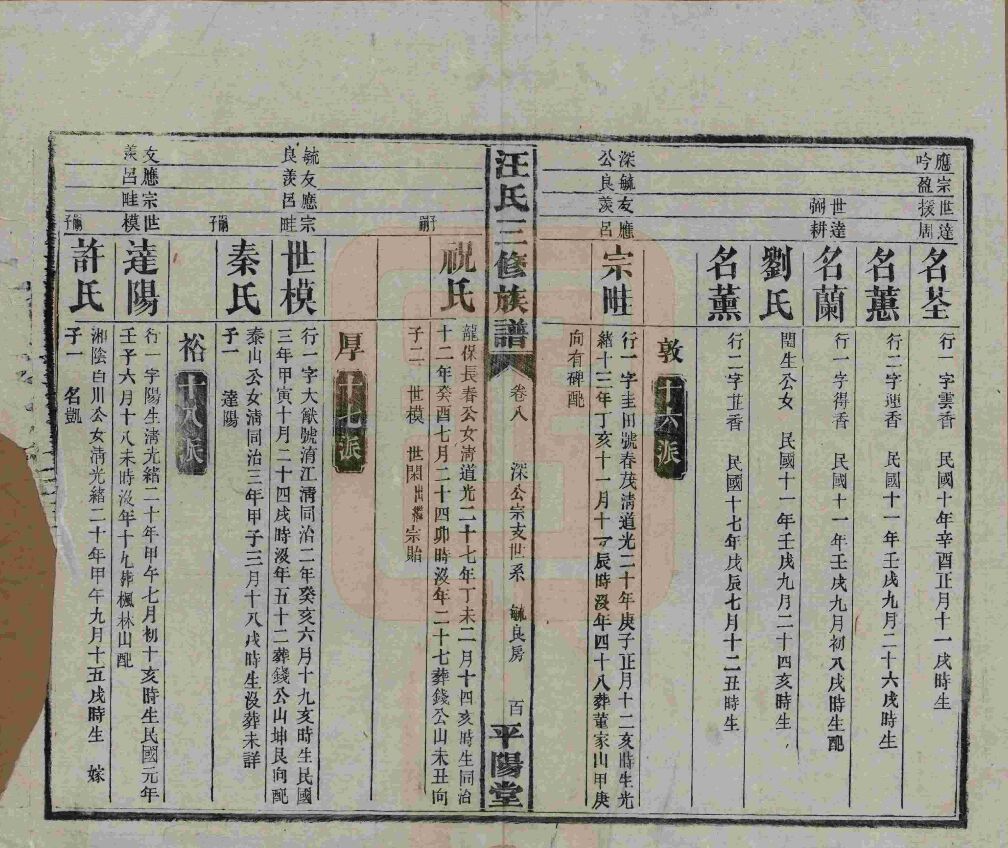 應宗世達
吟盈援周
名荃
行一字雲香 民國十年辛酉正月十一戌時生
名蕙
行二字蓮香 民國十一年壬戌九月二十六戌時生
世達
弼耕
名蘭
行一字得香 民國十一年壬戌九月初八戌時生配
劉氏
閏生公女 民國十一年壬戌九月二十四亥時生
名薰
行二字芷香 民國十七年戊辰七月十二丑時生
敦 十六派
深毓友應
公良羨呂
宗畦
行一字圭田號春茂淸道光二十年庚子正月十二亥時生光
緒十三年丁亥十一月十一辰時沒年四十八葬董家山甲庚
向有碑配
汪氏三修族譜
卷八 深公宗支世系 毓良房 百
平陽堂
子嗣
祝氏
龍保長春公女淸道光二十七年丁未二月十四亥時生同治
十二年癸酉七月二十四卯時沒年二十七葬錢公山未丑向
子二 世模 世閑出繼宗貽
厚 十七派
毓友應宗
良羨呂畦
世模
行一字大猷號淯江淸同治二年癸亥六月十九亥時生民國
三年甲寅十月二十四戌時沒年五十二葬錢公山坤艮向配
子嗣
秦氏
秦山公女淸同治三年甲子三月十八戌時生沒葬未詳
子一 達陽
裕 十八派
友應宗世
羨呂畦模
達陽
行一字陽生淸光緒二十年甲午七月初十亥時生民國元年
壬子六月十八未時沒年十九葬楓林山配
子嗣
許氏
湘陰白川公女淸光緒二十年甲午九月十五戌時生 嫁
子一 名凱